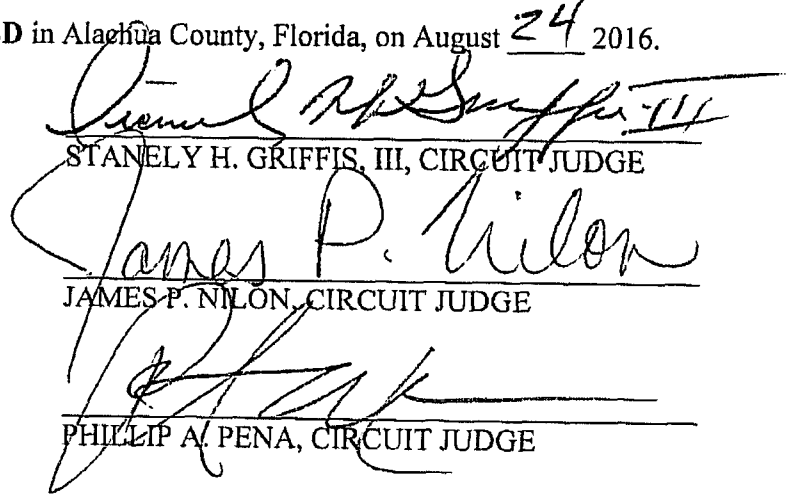 D in Alachua County, Florida, on August 24 2016.
STANELY H. GRIFFIS, III, CIRCUIT JUDGE
James P. Nilon
JAMES P. NILON, CIRCUIT JUDGE
PHILLIP A. PENA, CIRCUIT JUDGE